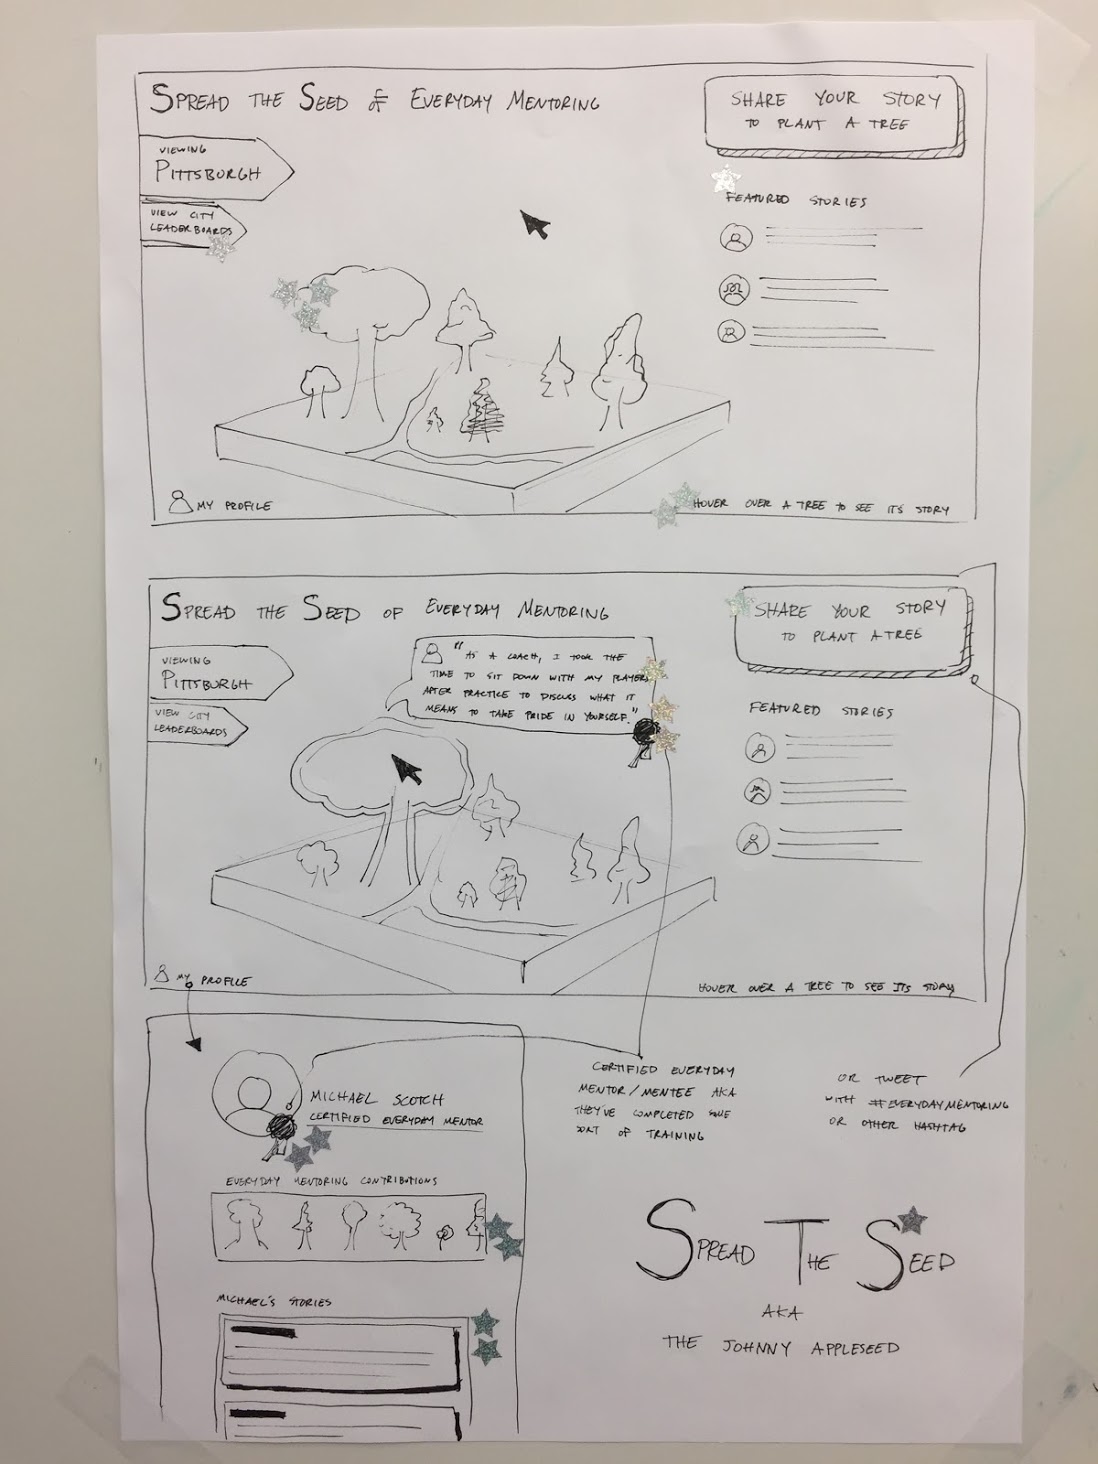 SPREAD THE SEED OF EVERYDAY MENTORING
SHARE YOUR STORY
TO PLANT A TREE
VIEWING
PITTSBURGH
VIEW CITY
LEADERBOARDS
FEATURED STORIES
MY PROFILE
HOVER OVER A TREE TO SEE ITS STORY
SPREAD THE SEED OF EVERYDAY MENTORING
SHARE YOUR STORY
TO PLANT A TREE
VIEWING
PITTSBURGH
VIEW CITY
LEADERBOARDS
"AS A COACH, I TOOK THE
TIME TO SIT DOWN WITH MY PLAYERS
AFTER PRACTICE TO DISCUSS WHAT IT
MEANS TO TAKE PRIDE IN YOURSELF."
FEATURED STORIES
MY PROFILE
HOVER OVER A TREE TO SEE ITS STORY
MICHAEL SCOTCH
CERTIFIED EVERYDAY MENTOR
EVERYDAY MENTORING CONTRIBUTIONS
MICHAEL'S STORIES
CERTIFIED EVERYDAY
MENTOR/MENTEE AKA
THEY'VE COMPLETED SOME
SORT OF TRAINING
OR TWEET
WITH #EVERYDAYMENTORING
OR OTHER HASHTAG
SPREAD THE SEED
AKA
THE JOHNNY APPLESEED